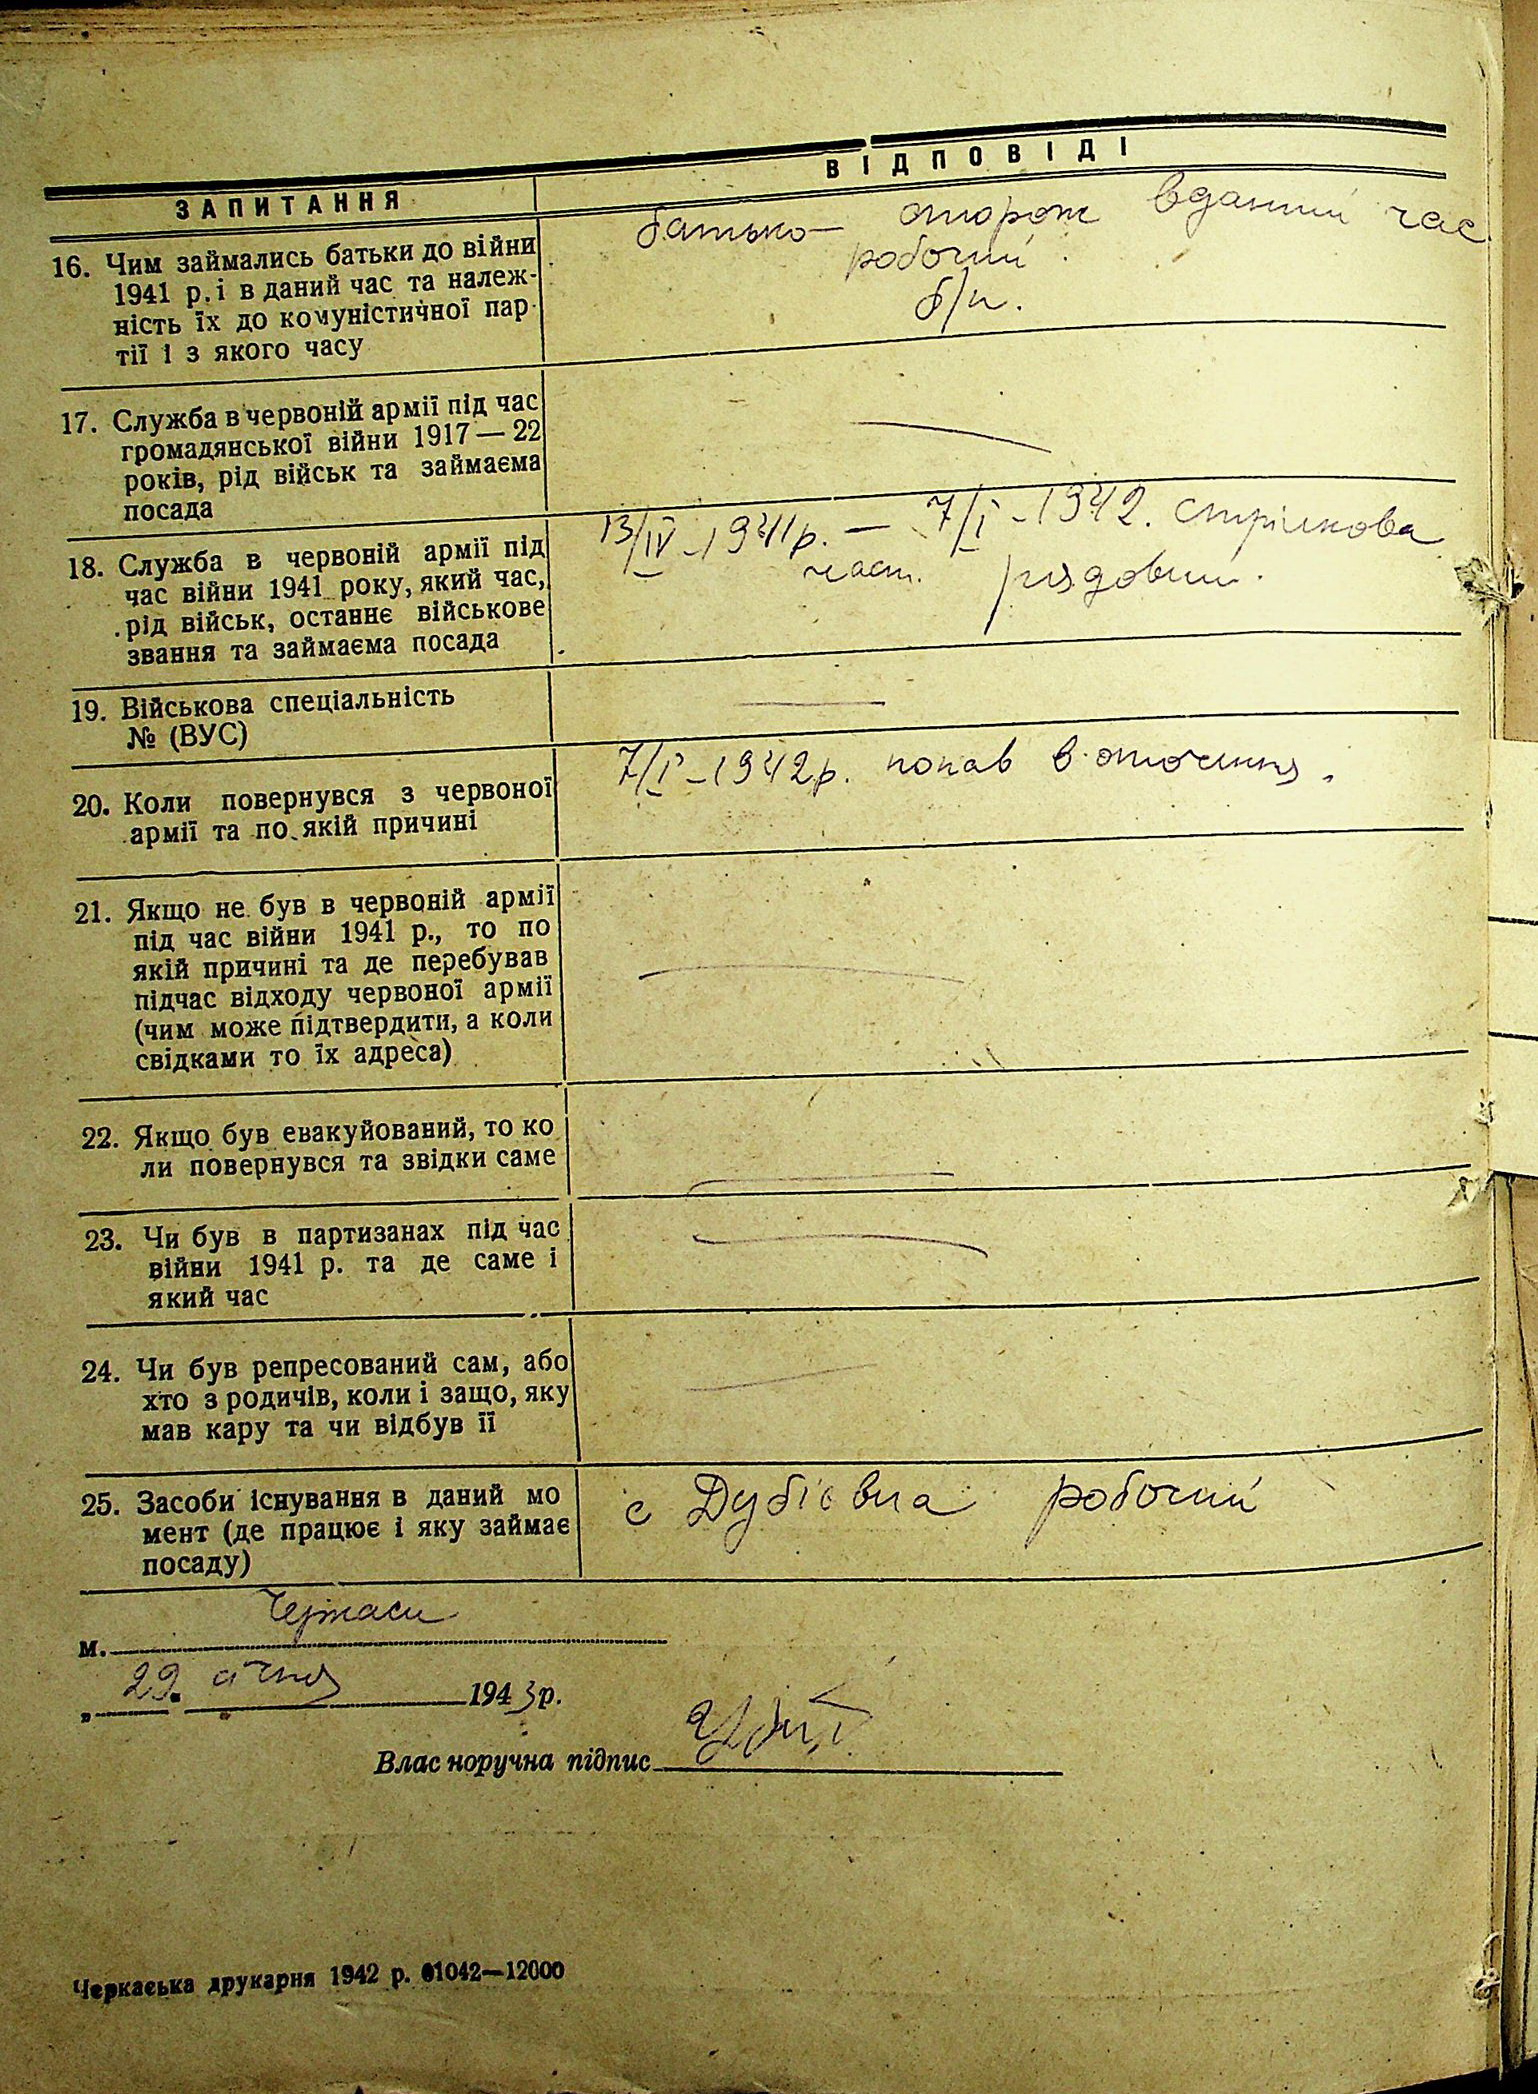 ЗАПИТАННЯ
ВІДПОВІДІ
16. Чим займались батьки до війни
1941 р. і в даний час та належ-
ність їх до комуністичної пар-
тії і з якого часу
батько — сторож вданий час
робочий
б/п.
17. Служба в червоній армії під час
громадянської війни 1917 — 22
років, рід військ та займаєма
посада
18. Служба в червоній армії під
час війни 1941 року, який час,
рід військ, останнє військове
звання та займаєма посада
13/IV - 1941р. — 7/I - 1942. стрілкова
част. рядовий.
19. Військова спеціальність
№ (ВУС)
20. Коли повернувся з червоної
армії та по якій причині
7/I - 1942р. попав в оточення.
21. Якщо не був в червоній армії
під час війни 1941 р., то по
якій причині та де перебував
підчас відходу червоної армії
(чим може підтвердити, а коли
свідками то їх адреса)
22. Якщо був евакуйований, то ко
ли повернувся та звідки саме
23. Чи був в партизанах під час
війни 1941 р. та де саме і
який час
24. Чи був репресований сам, або
хто з родичів, коли і защо, яку
мав кару та чи відбув її
25. Засоби існування в даний мо
мент (де працює і яку займає
посаду)
с Дубіївка робочий
м. Черкаси
„ 29. січня 1943р.
Влас норучна підпис
Черкаська друкарня 1942 р. 01042—12000